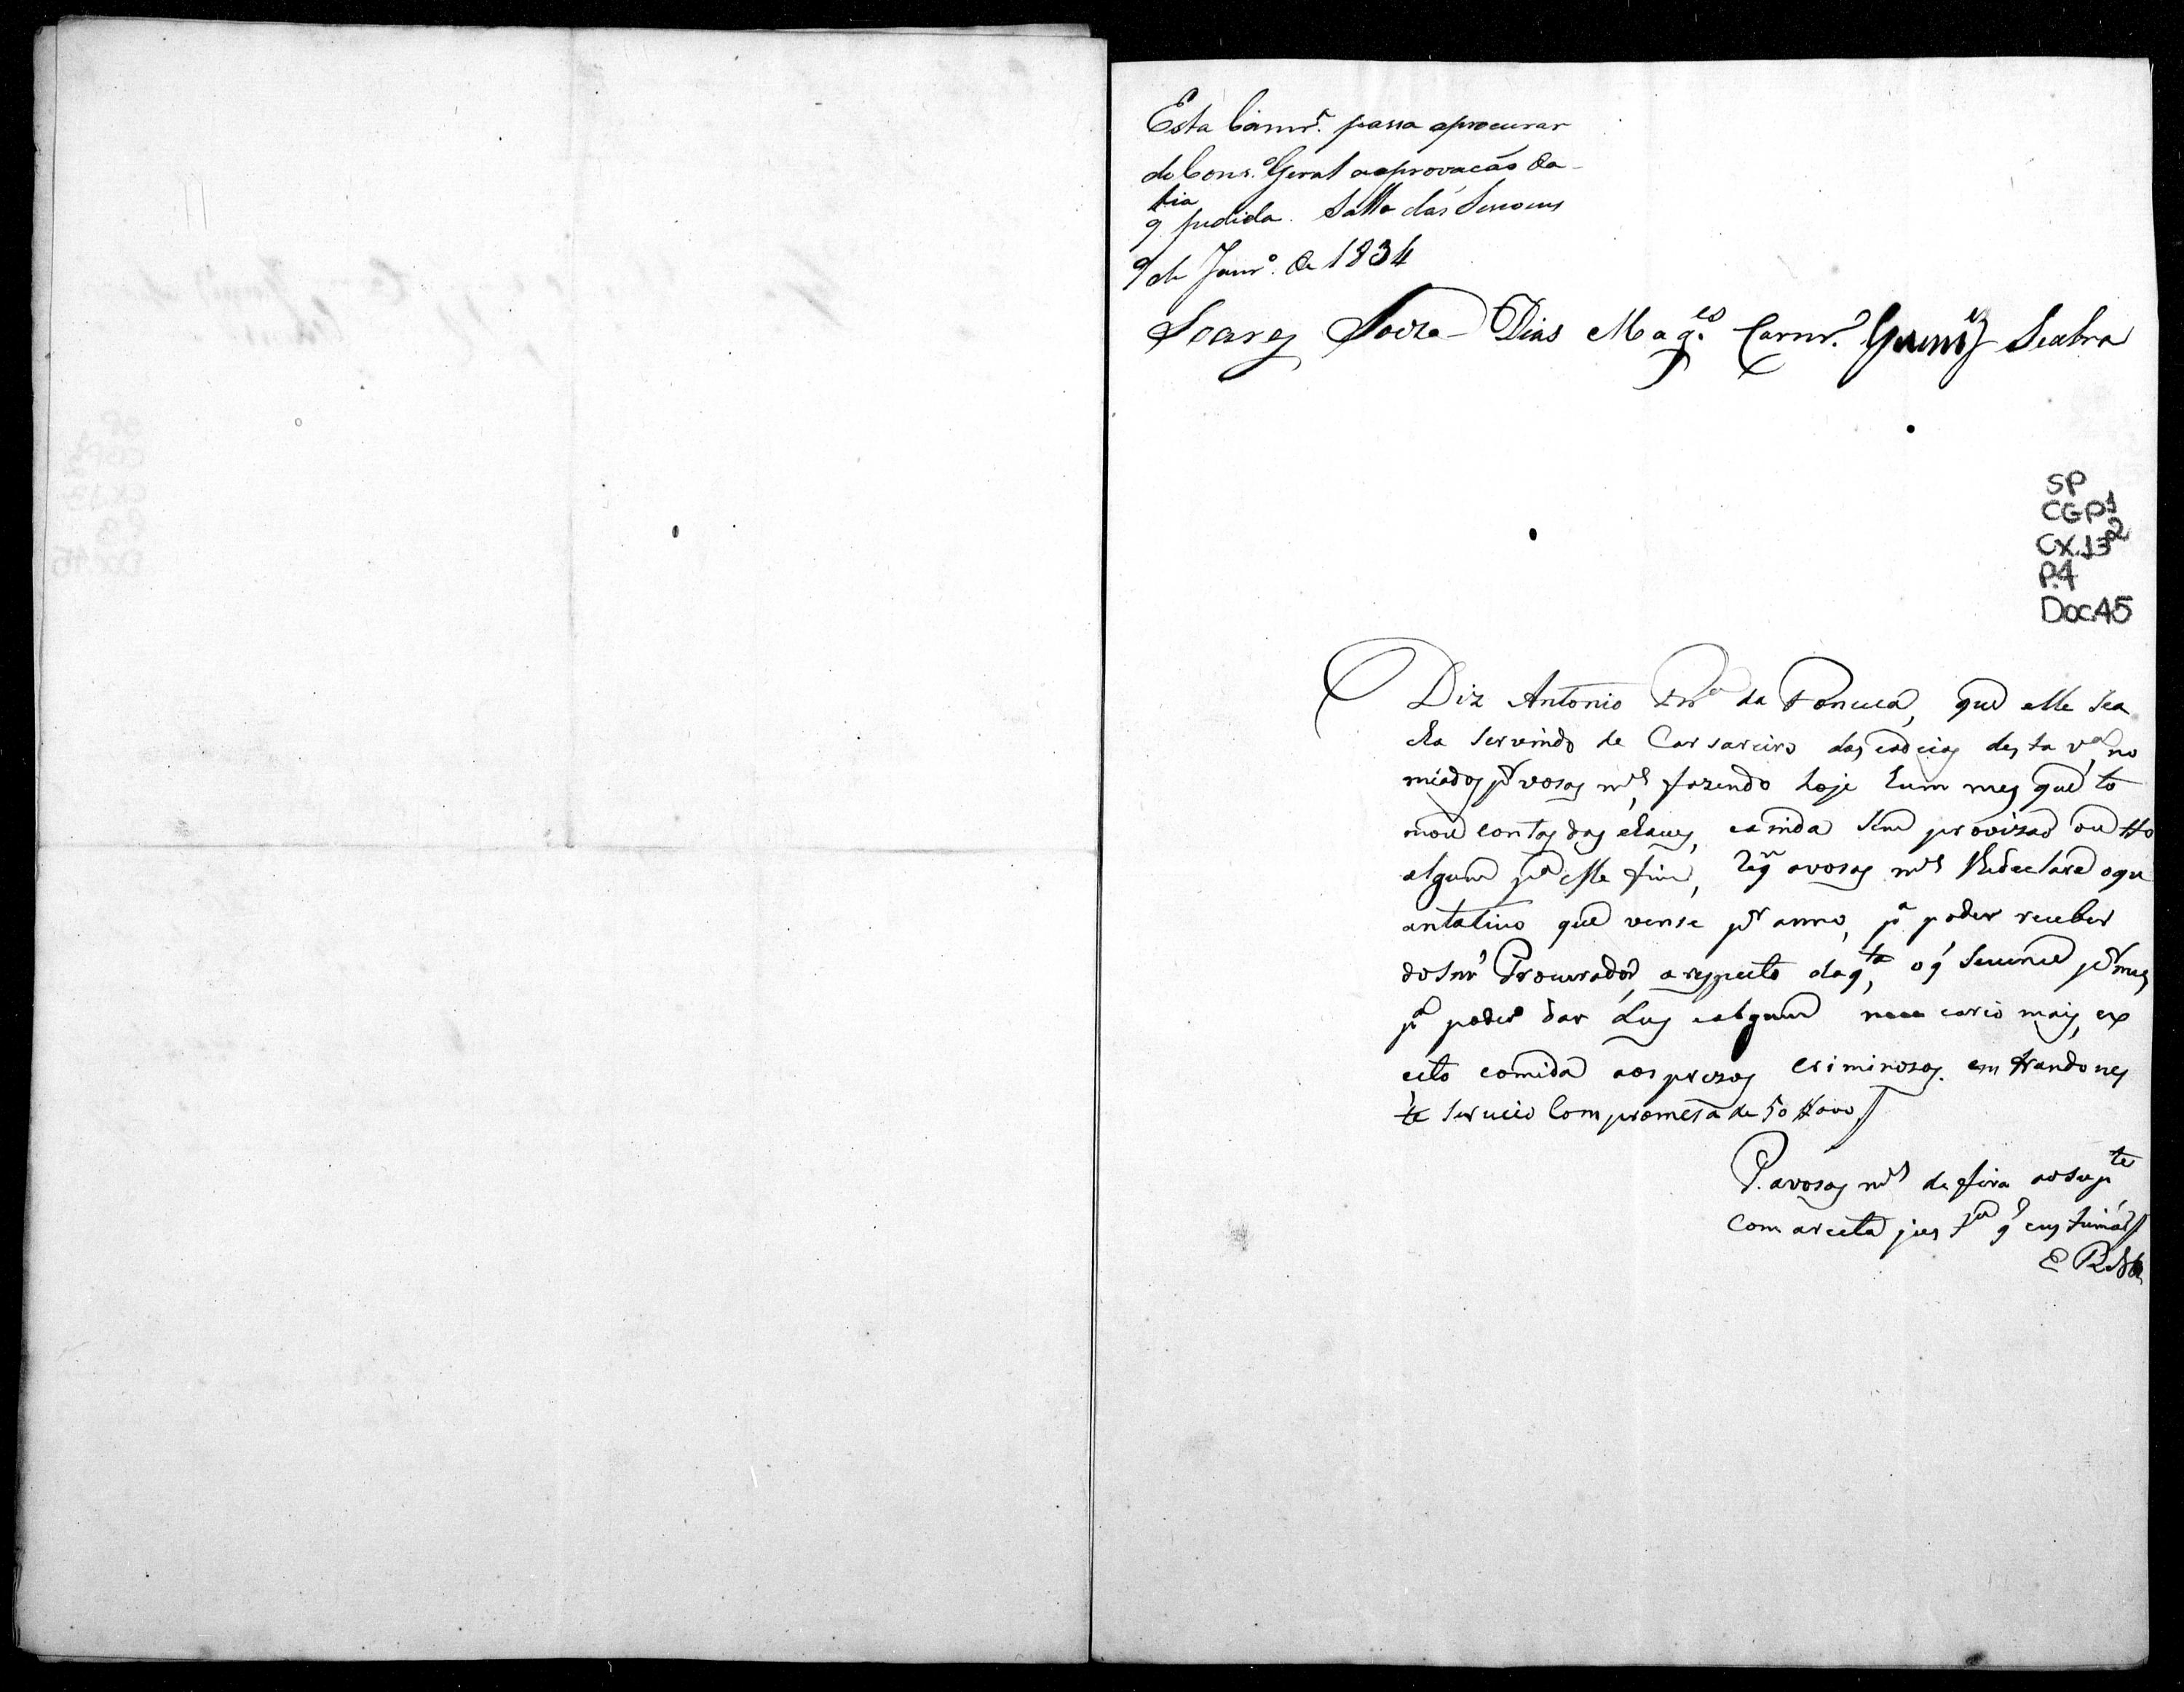 Esta Camrª. passa aprocurar
do Cons.º Geral aaprovacão da
qtia pedida. Salla das Sessoens
9 de Janrº. de 1834
Soares Souza Dias Mag.es Carnrº. Seabra
SP
CGP1
CX.13.2
P.4
Doc.45
Diz Antonio da Fonceca, que elle sea
cha servindo de Carsareiro das cadeias desta vª, no
miados pr vosas mces, fazendo hoje hum mes que to
mou contas das chaves, eainda sem provizaõ ou tto
algum pª esse fim, Reqr avosas mces lhedeclare oqu
antativo que vense pr anno, pª poder receber
do Snr Procurador, arespeito daqta, oq' sevence pr mes,
pª poder dar Lus ealgum nece cario mais, ex
ceto comida aos prezos criminosos. emtrando nes
te servicio Com promesa de 50
P. avosas mces defira aosupte
Com areta justª q' custumaõ
E R Mce